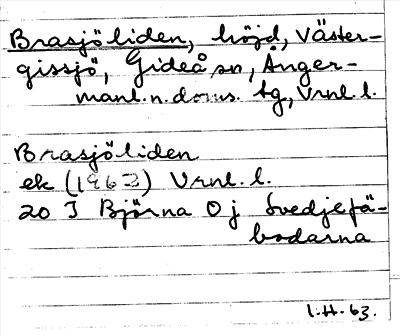 Brasjöliden, höjd, Väster-
gissjö, Gideå sn, Ånger-
manl. n. doms. tg, Vrnl. l.
Brasjöliden
ek (1963) Vrnl. l.
20 I Björna O j Svedjefä-
bodarna
I.H. 63.